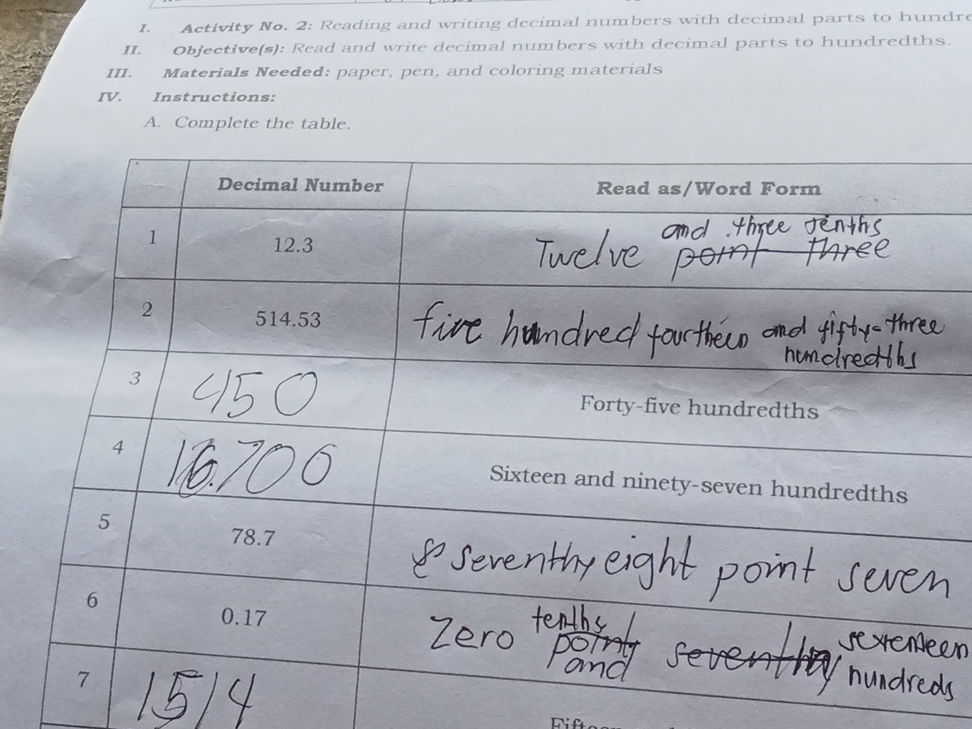 I. Activity No. 2: Reading and writing decimal numbers with decimal parts to
II. Objective(s): Read and write decimal numbers with decimal parts to hundredths.
III. Materials Needed: paper, pen, and coloring materials
IV. Instructions:
A. Complete the table.
Decimal Number Read as/Word Form
and three tenths
1 12.3 Twelve point three
2 514.53 five hundred fourtheen and fifty-three
hundredths
3 450 Forty-five hundredths
4 16.700 Sixteen and ninety-seven hundredths
5 78.7 seventhy eight point seven
tenths
6 0.17 Zero point seventhy seventeen
and hundreds
7 1514